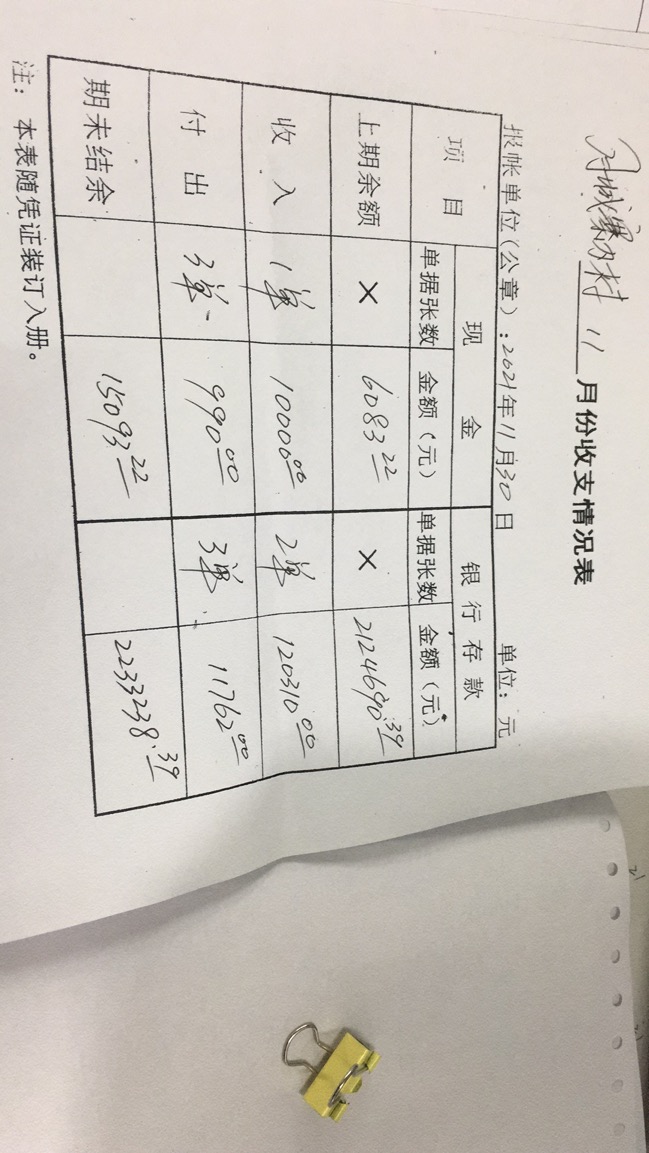 村 11 月份收支情况表
报帐单位(公章):2021年11月30日 单位:元
项目 现金 银行存款
单据张数 金额(元) 单据张数 金额(元)
上期余额 × 6083.22 × 2124690.39
收入 1单 10000.00 2单 120310.00
付出 3单 990.00 3单 11762.00
期未结余 15093.22 2233238.39
注:本表随凭证装订入册。